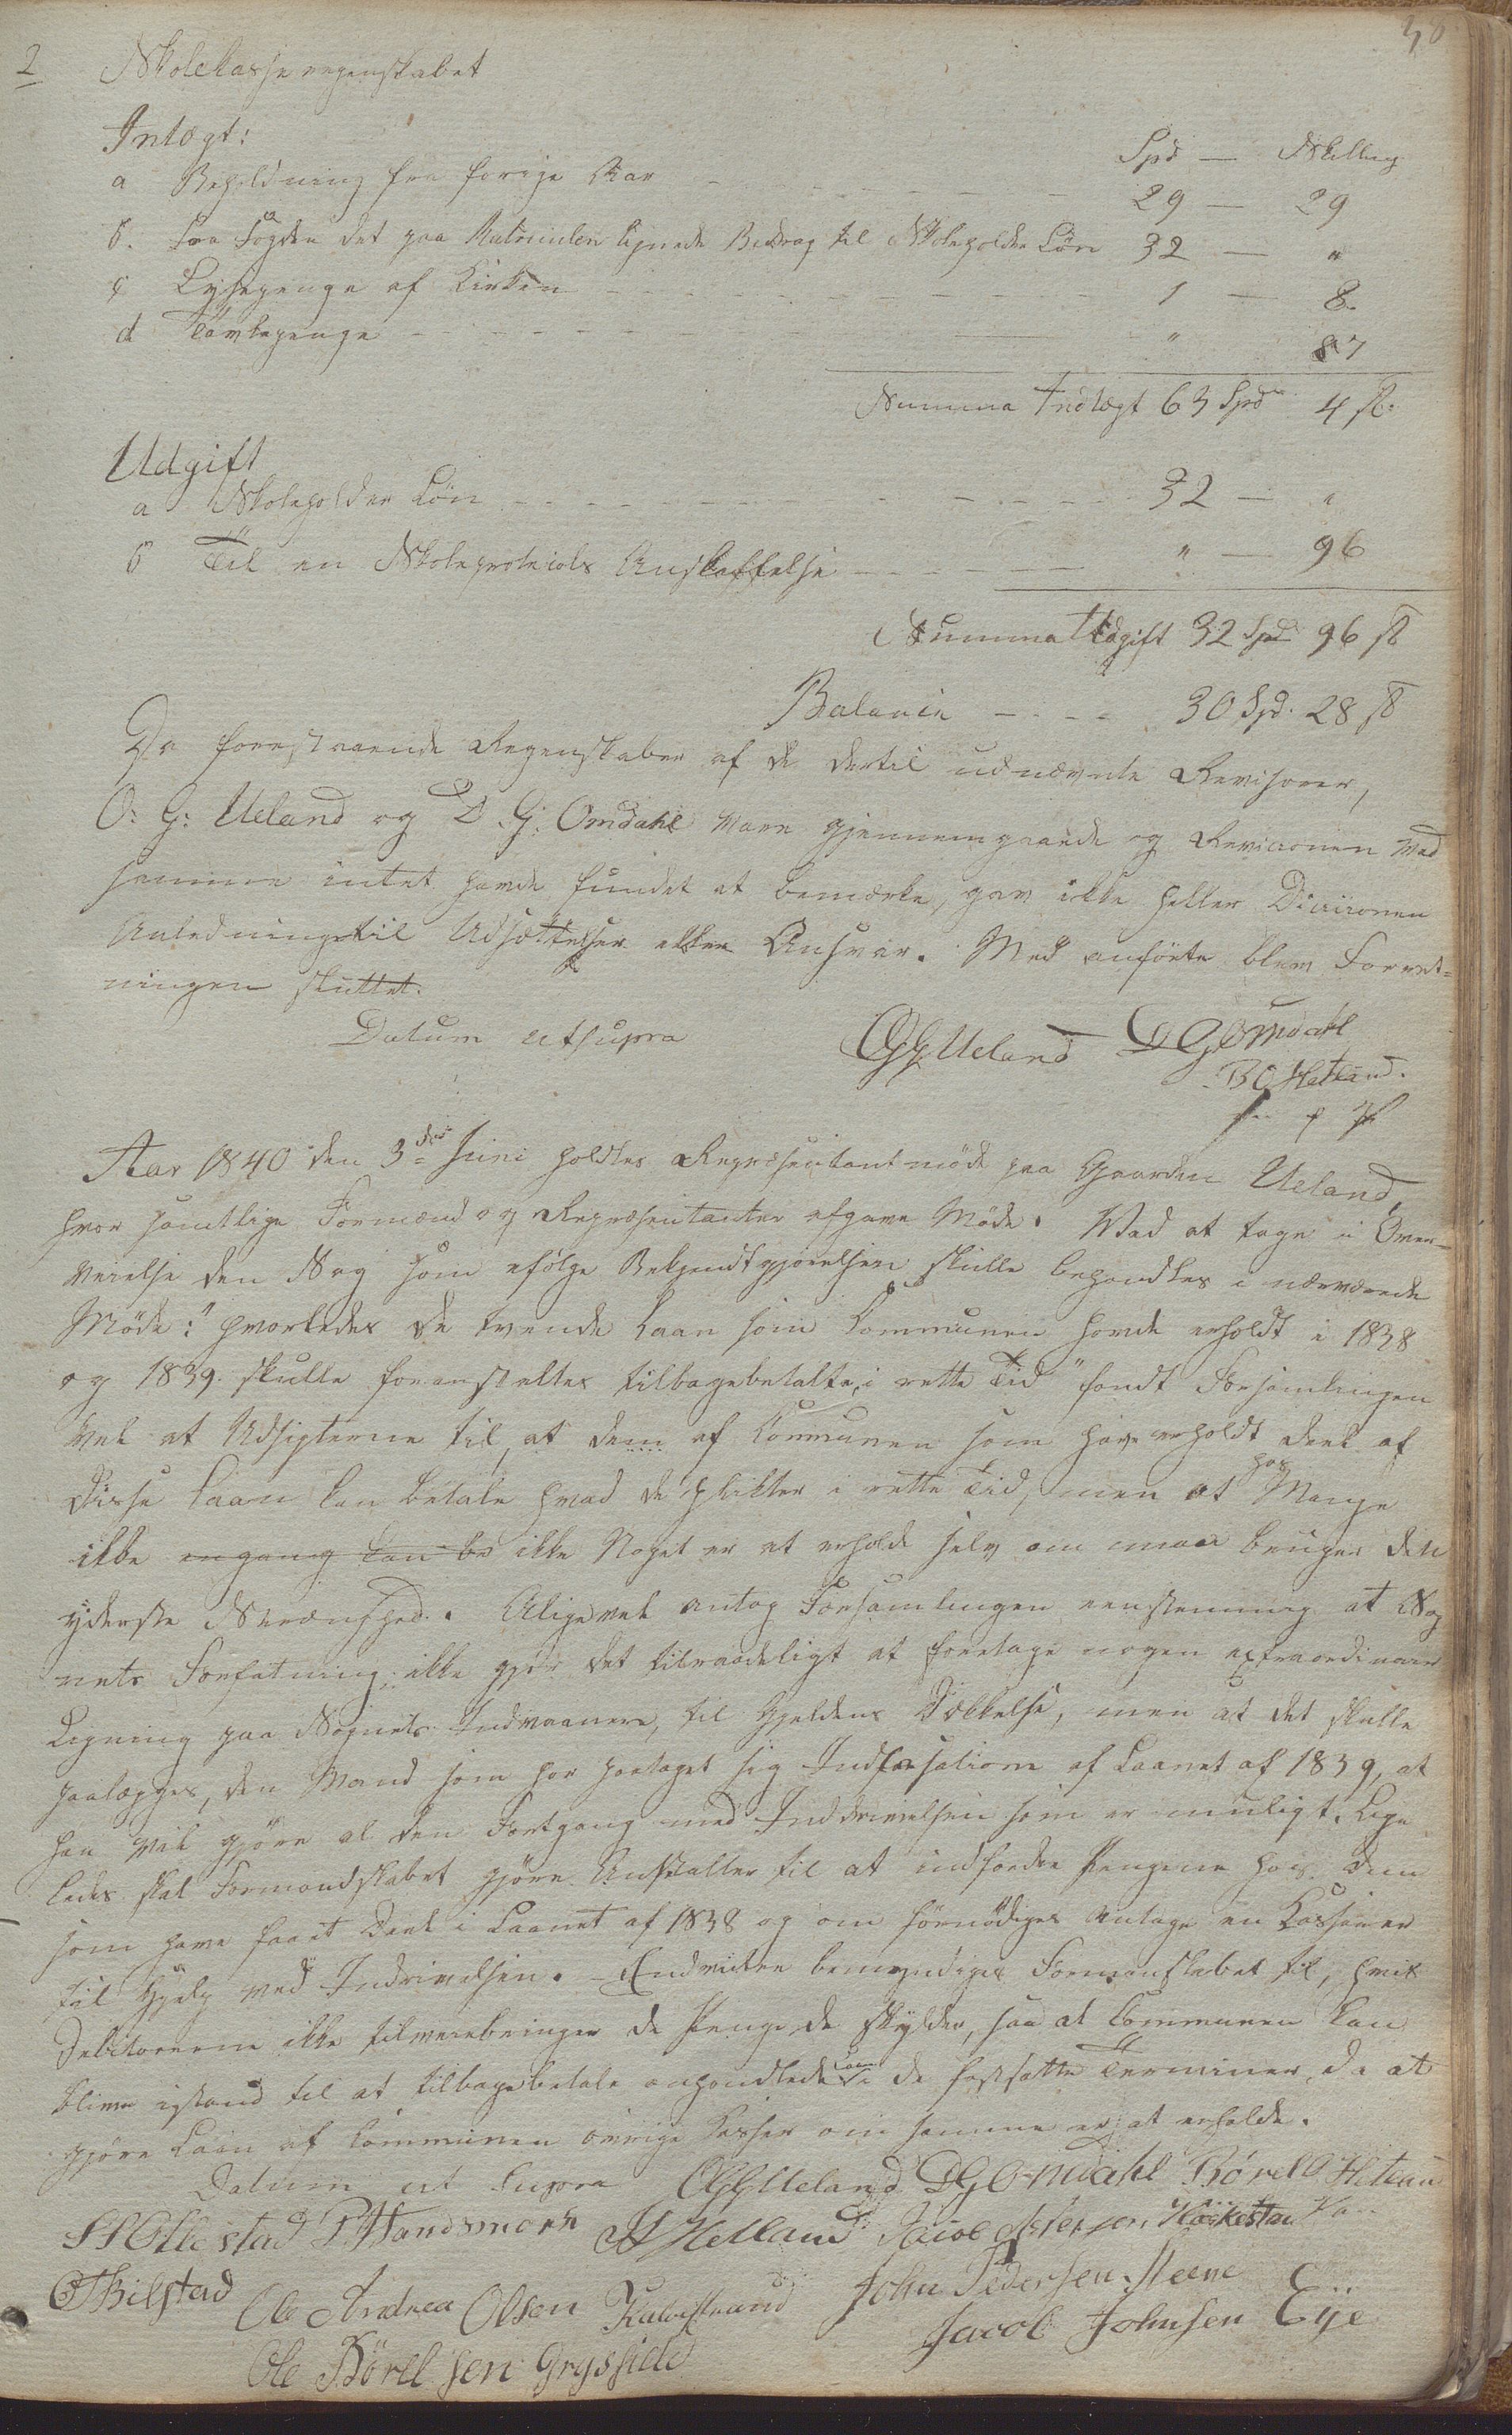 38
2 Skolekasseregnskabet
Intægt:
Spd — Skilling
a Beholdning fra forrige Aar 29 — 29
b. Fra Fogden det paa Matriculen lignede Bidrag til Skoleholder Løn 32 — "
c Lysepenge af Kirken 1 — 8
d Tavlepenge " 87
Summa Indtægt 63 Spd 4 ſk:
Udgift
a Skoleholder Løn 32 — "
b Til en Skoleprotokols Anskaffelse " — 96
Summa Udgift 32 Spd 96 ſk
Balance 30 Spd. 28 ſk
Da forestaaende Regnskaber af de dertil udnævnte Revisorer,
O: G: Ueland og D. G: Omdahl vare gjennemgaaede og Revisionen ved
samme intet havde fundet at bemærke, gav ikke heller Decisionen
Anledning til Udsættelser eller Ansvar. Med anførte blev Forret-
ningen sluttet.
Datum ut supra OGUeland DGOmdahl
BO Hetland.
Aar 1840 den 3die Juni holdtes Repræsentantmøde paa Gaarden Ueland,
hvor samtlige Formænd og Repræsentanter afgave Møde. Ved at tage i Over-
veielse den Sag som efølge Bekjendtgjørelsen skulle behandles i nærværende
Møde: "hvorledes de tvende Laan som Communen havde erholdt i 1838
og 1839 skulle foranstaltes tilbagebetalte, i rette Tid" fandt Forsamlingen
vel at Udsigterne til, at dem af Communen som have erholdt Deel af
disse Laan kan betale hvad de pligter i rette Tid, men at hos Mange
ikke engang kan be ikke Noget er at erholde selv om man bruger den
yderste Strænghed. Aligevel antog Forsamlingen eenstemmig at Sog
nets Forfatning ikke gjør det tilraadeligt at foretage nogen extraordinair
Ligning paa Sognets Indvaanere, til Gjeldens Dækkelse, men at det skulle
paalægges, den Mand som har paataget sig Indkassationen af Laanet af 1839, at
han vil gjøre al den Fortgang med Inddrivelsen som er muligt. Lige
ledes skal Formandskabet gjøre Anstalter til at indfordre Pengene hos dem
som have faaet Deel i Laanet af 1838 og om fornødiges antage en Kasserer
til Hjelp ved Indrivelsen. – Endvidere bemyndiges Formandskabet til, hvis
Debitorerne ikke tilveiebringer de Penge de skylder, saa at Communen kan
blive istand til at tilbagebetale omhandlede Laan i de fastsatte Terminer, da at
gjøre Laan af Communens øvrige Kasser om samme er at erholde.
Datum ut Supra OGUeland DGOmdahl Børel O Hetland
SSOllestad P Handsmork Hetland Jacob Asersen
Bilstad Ole Andrea Olsen John Pedersen Steene
Ole Børelsen Grøsfield Jacob Johnsen Eye